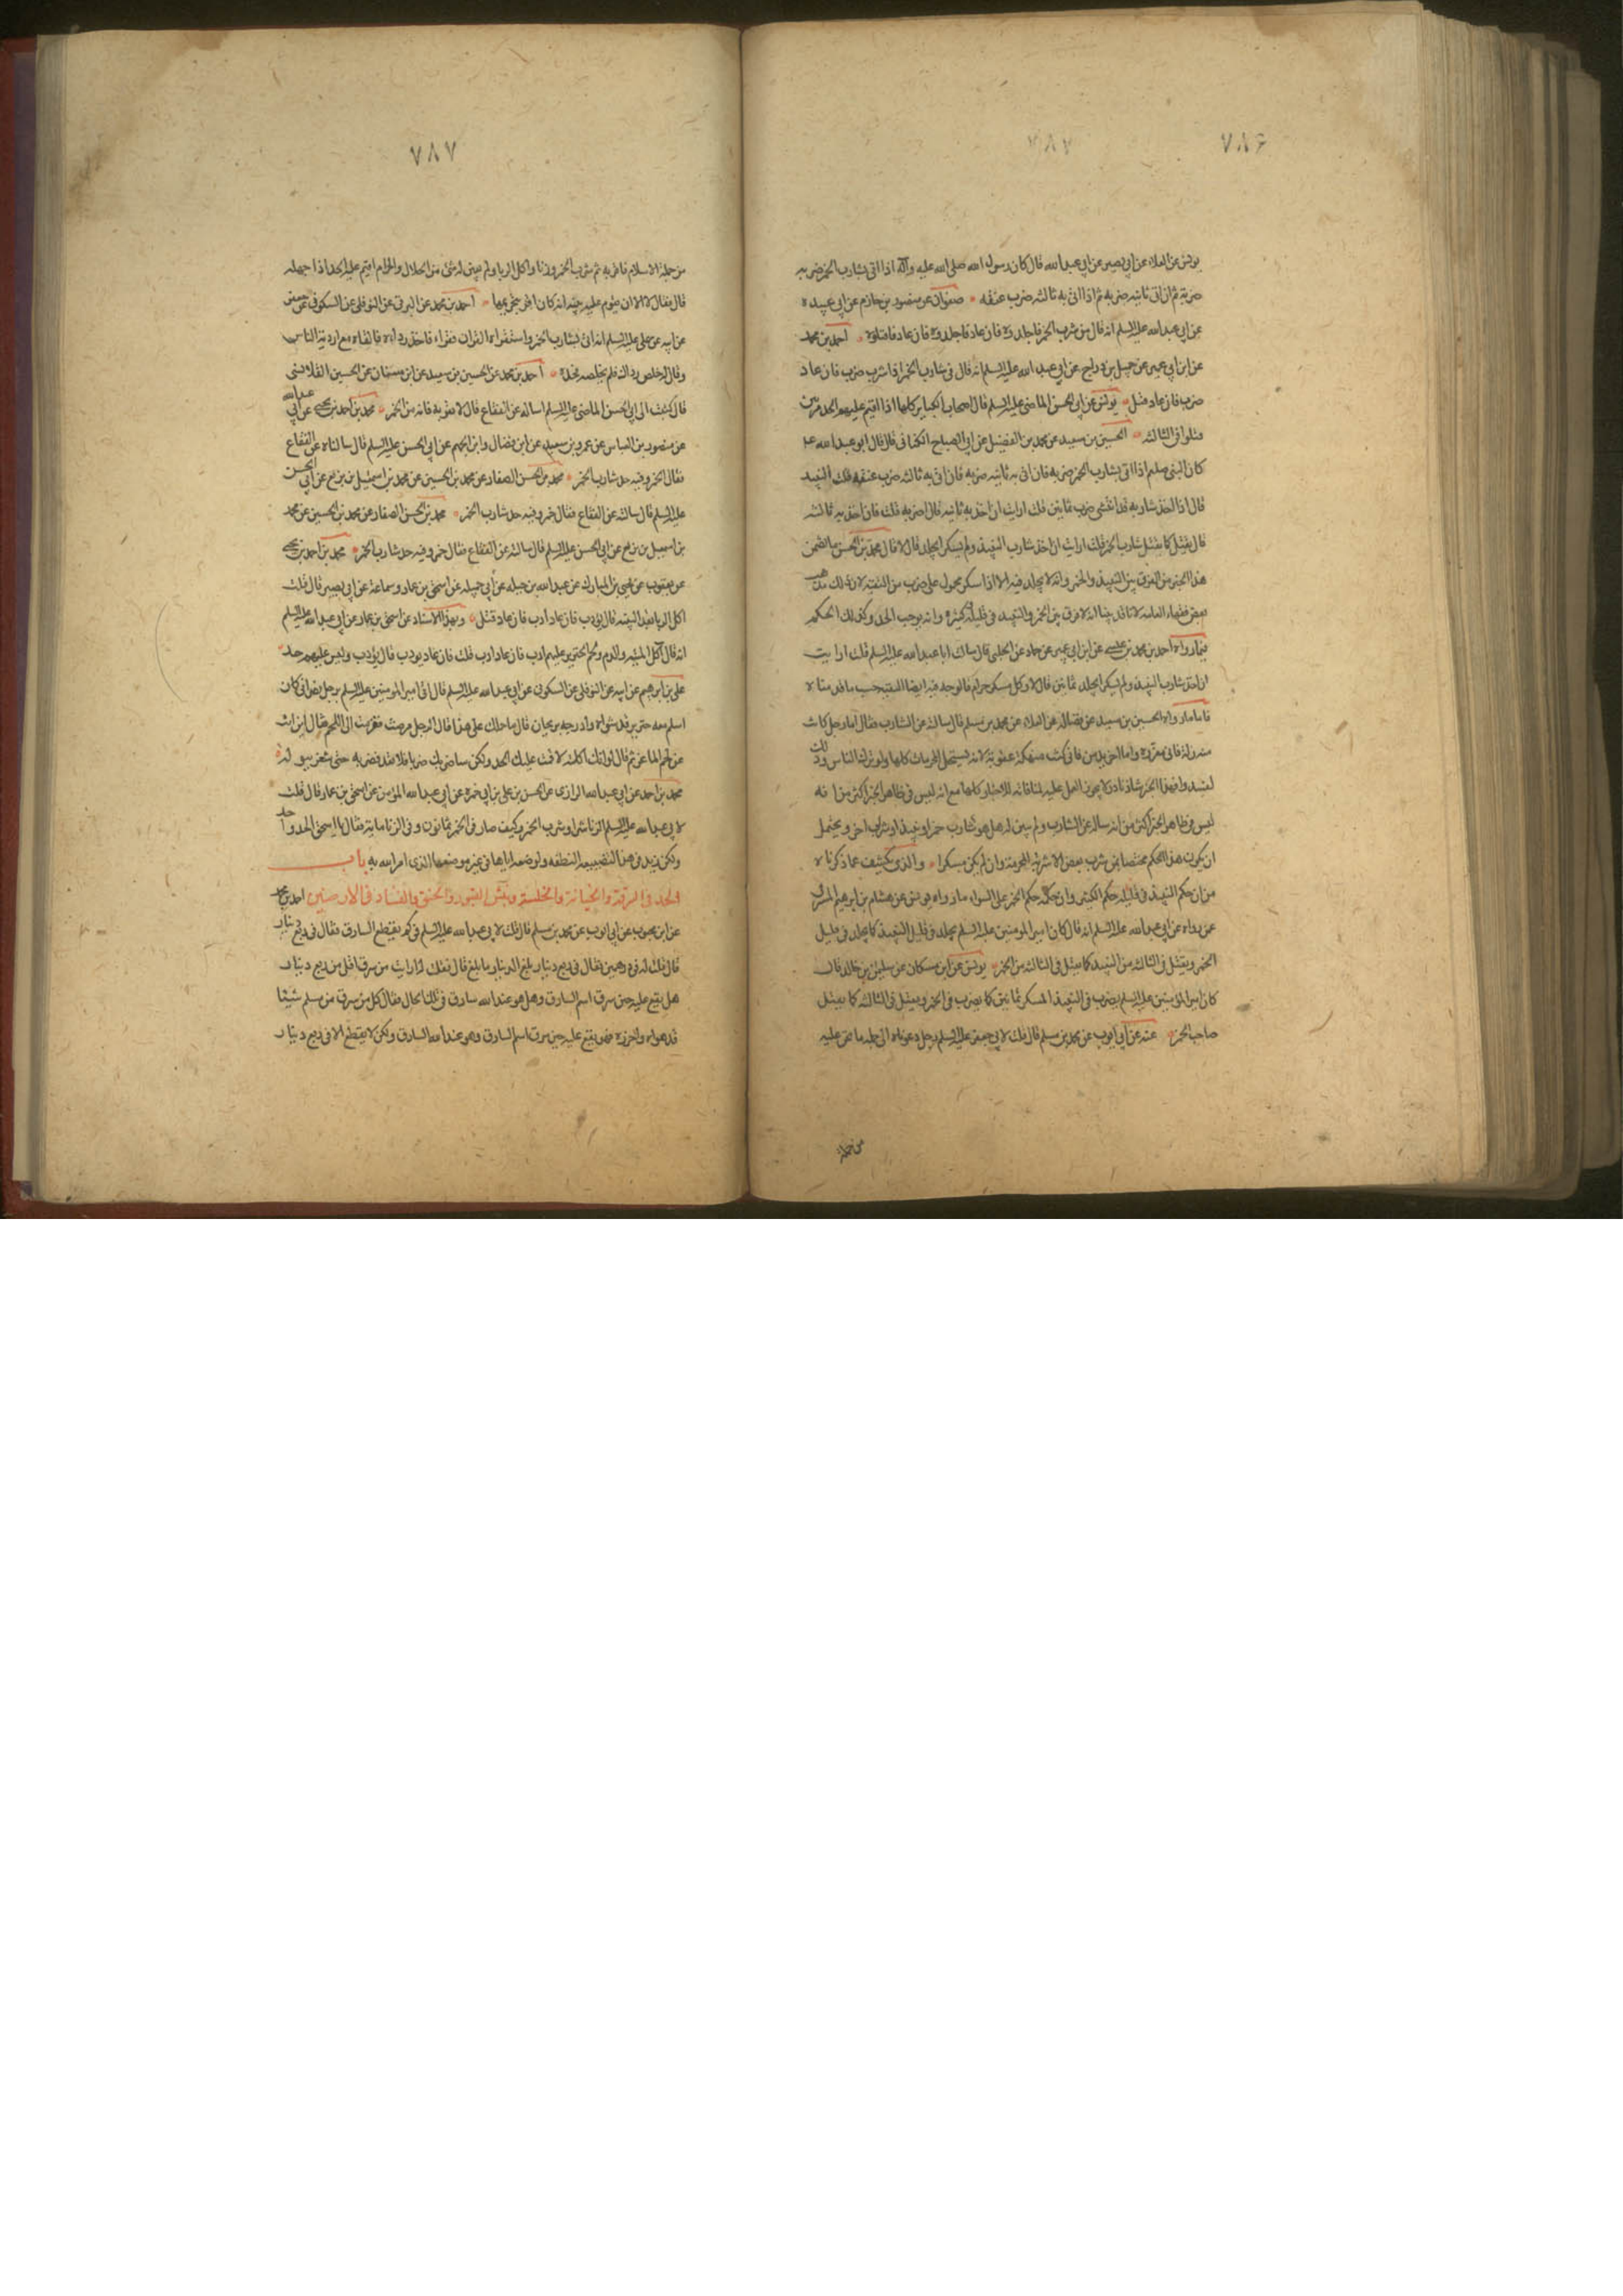 ٧٨۶
٧٨٧
يونس عن العلاء عن ابي بصير عن ابي عبد الله قال كان رسول الله صلى الله عليه وآله اذا اتى بشارب الخمر ضربه
ضربه ثم ان اتى ثانيه ضربه ثم اذا اتى به ثالثه ضرب عنقه صفوان عن منصور بن حازم عن ابي عبيده
عن ابي عبد الله عليه السلم انه قال من شرب الخمر فاجلدوه فان عاد فاجلدوه فان عاد فاقتلوه احمد بن محمد
عن ابن ابي عمير عن جميل بن دراج عن ابي عبد الله عليه السلم انه قال فى شارب الخمر اذا شرب ضرب فان عاد
ضرب فان عاد قتل يونس عن ابي الحسن الماضى عليه السلم قال اصحاب الكباير كلها اذا اقيم عليهم الحد مرتين
قتلوا فى الثالثه الحسين بن سعيد عن محمد بن الفضيل عن ابي الصباح الكنانى قال قال ابو عبد الله
كان النبى صلم اذا اتى بشارب الخمر ضربه فان اتى به ثانيه ضربه فان اتى به ثالثه ضرب عنقه قلت النبيذ
قال اذا اخذ شاربه قد انتشى ضرب ثمانين قلت ارايت ان اخذ به ثانيه قال اضربه قلت فان اخذ به ثالثه
قال يقتل كما يقتل شارب الخمر قلت ارايت ان اخذ شارب النبيذ ولم يسكر ايجلد قال لا قال محمد بن الحسن ما تضمن
هذا الخبر من الفرق بين النبيذ والخمر وانه لا يجلد فيه الا اذا سكر محمول على ضرب من التقيه لان ذلك مذهب
بعض فقهاء العامه لانا قد بينا انه لا فرق بين الخمر والنبيذ فى قليله وكثيره وانه يوجب الحد وكذلك الحكم
فيما رواه احمد بن محمد بن عيسى عن ابن ابي عمير عن حماد عن الحلبى قال سالت ابا عبد الله عليه السلم قلت ارايت
ان اخذ شارب النبيذ ولم يسكر ايجلد ثمانين قال لا وكل مسكر حرام فالوجه فيه ايضا التقيه حسب ما قدمناه
فاما ما رواه الحسين بن سعيد عن فضاله عن العلاء عن محمد بن مسلم قال سالته عن الشارب فقال اما رجل كانت
منه زلة فانى معزره واما اخر يدمن فانى كنت منهكه عقوبة لانه يستحل المحرمات كلها ولو ترك الناس وذلك
لفسدوا فهذا الخبر شاذ نادر لا يجوز العمل عليه لمنافاته للاخبار كلها مع انه ليس فى ظاهر الخبر اكثر من انه
ليس فى ظاهر الخبر اكثر من انه ساله عن الشارب ولم يبين له هل هو شارب خمر او نبيذ او شراب اخر ويحتمل
ان يكون هذا الحكم مختصا بمن شرب بعض الاشربه المحرمة وان لم يكن مسكرا والذى يكشف عما ذكرناه
من ان حكم النبيذ فى قليله حكم الكثير وان حكمه حكم الخمر على السواء ما رواه يونس عن هشام بن ابرهيم المشرقى
عمن رواه عن ابي عبد الله عليه السلم انه قال كان امير المومنين عليه السلم يجلد فى قليل النبيذ كما يجلد فى قليل
الخمر ويقتل فى الثالثه من النبيذ كما يقتل فى الثالثه من الخمر يونس عن ابن مسكان عن سليمن بن خالد قال
كان امير المومنين عليه السلم يضرب فى النبيذ المسكر ثمانين كما يضرب فى الخمر ويقتل فى الثالثه كما يقتل
صاحب الخمر عنه عن ابي ايوب عن محمد بن مسلم قال قلت لابي جعفر عليه السلم رجل دعوناه الى جمله ما نحن عليه
من جملة
٧٨٧
من جملة الاسلام فاقر به ثم شرب الخمر وزنا واكل الربا ولم يبين له شئ من الحلال والحرام اقيم عليه الحد اذا جهله
قال فقال لا الا ان تقوم عليه بينه انه كان اقر بتحريمها احمد بن محمد عن البرقى عن النوفلى عن السكونى عن جعفر
عن ابيه عن على عليه السلم انه اتى بشارب الخمر واستقراه القران فقراء فاخذ رداءه فالقاه مع اردية الناس
وقال له خلص رداك فلم يخلصه فحده احمد بن محمد عن الحسين بن سعيد عن ابن سنان عن الحسين القلانسى
قال كتبت الى ابي الحسن الماضى عليه السلم اساله عن الفقاع قال لا تقربه فانه من الخمر محمد بن احمد بن يحيى عن ابي عبد الله
عن منصور بن العباس عن عمرو بن سعيد عن ابن فضال وابن الجهم عن ابي الحسن عليه السلم قال سالناه عن الفقاع
فقال الخمر وفيه حد شارب الخمر محمد بن الحسن الصفار عن محمد بن الحسين عن محمد بن اسمعيل بن بزيع عن ابي الحسن
عليه السلم قال سالته عن الفقاع فقال خمر وفيه حد شارب الخمر محمد بن الحسن الصفار عن محمد بن الحسين عن محمد
بن اسمعيل بن بزيع عن ابي الحسن عليه السلم قال سالته عن الفقاع فقال خمر وفيه حد شارب الخمر محمد بن احمد بن يحيى
عن يعقوب عن يحيى بن المبارك عن عبد الله بن جبله عن ابي جميله عن اسحق بن عمار وسماعة عن ابي بصير قال قلت
اكل الربا بعد البينه قال يؤدب فان عاد ادب فان عاد قتل وبهذا الاسناد عن اسحق بن عمار عن ابي عبد الله عليه السلم
انه قال آكل الميته والدم ولحم الخنزير عليهم ادب فان عاد ادب قلت فان عاد يودب قال يؤدب وليس عليهم حد
على بن ابرهيم عن ابيه عن النوفلى عن السكونى عن ابي عبد الله عليه السلم قال اتى امير المومنين عليه السلم برجل نصرانى كان
اسلم معه خنزير قد شواه وادرجه بريحان قال ما حملك على هذا قال الرجل مرضت فقرمت الى اللحم فقال اين انت
عن لحم الماعز ثم قال لو انك اكلته لاقمت عليك الحد ولكن ساضربك ضربا فلا تعد فضربه حتى شغر ببوله
محمد بن احمد عن ابي عبد الله الرازى عن الحسن بن على بن ابي حمزه عن ابي عبد الله المؤمن عن اسحق بن عمار قال قلت
لابي عبد الله عليه السلم الزنا شر او شرب الخمر وكيف صار فى الخمر ثمانون وفى الزنا مايه فقال يا اسحق الحد واحد
ولكن زيد فى هذا لتضييعه النطفه ولوضعه اياها فى غير موضعها الذى امر الله به باب
الحد فى السرقة والخيانة والخلسة ونبش القبور والخنق والفساد فى الارضين احمد بن محمد
عن ابن محبوب عن ابي ايوب عن محمد بن مسلم قال قلت لابي عبد الله عليه السلم فى كم يقطع السارق فقال فى ربع دينار
قال قلت له فى درهمين فقال فى ربع دينار بلغ الدينار ما بلغ قال فقلت له ارايت من سرق اقل من ربع دينار
هل يقع عليه حين سرق اسم السارق وهل هو عند الله سارق فى تلك الحال فقال كل من سرق من مسلم شيئا
قد حواه واحرزه فهو يقع عليه حين سرق اسم السارق وهو عند الله السارق ولكن لا يقطع الا فى ربع دينار